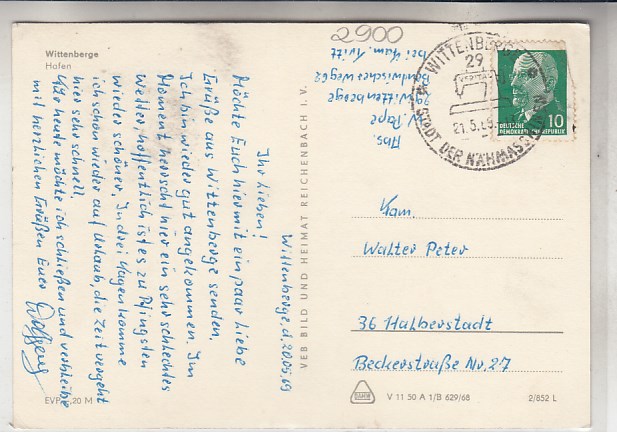 2900
Wittenberge
Hafen
Wittenberge, d. 20.05.69
Ihr Lieben!
Möchte Euch hier mit ein paar liebe
Grüße aus Wittenberge senden.
Ich bin wieder gut angekommen. Im
Moment herrscht hier ein sehr schlechtes
Wetter, hoffentlich ist es zu Pfingsten
wieder schöner. In drei Tagen komme
ich schon wieder auf Urlaub, die Zeit vergeht
hier sehr schnell.
Für heute möchte ich schließen und verbleibe
mit herzlichen Grüßen Euer Wolfgang
EVP 0,20 M
VEB BILD UND HEIMAT REICHENBACH I. V.
Abs.
W. Pape
29 Wittenberge
Bentwischer Weg 62
bei Fam. Witt
WITTENBERGE
29
VERITAS
21.5.69
STADT DER NÄHMASCHINEN
DEUTSCHE
DEMOKRATISCHE REPUBLIK
10
Fam.
Walter Peter
36 Halberstadt
Beckerstraße Nr. 27
V 11 50 A 1/B 629/68
2/852 L